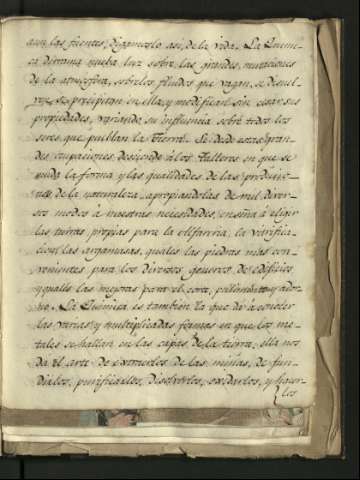 aun las fuentes, digamoslo asi, de la vida. La Quimi-
ca derrama nueba luz sobre las grandes mutaciones
de la atmosfera, sobre los fluidos que vagan, se disuel-
ven, se precipitan en ella, y modifican sin cesar sus
propiedades, variando su influencia sobre todos los
seres que pueblan la Tierra. Se de estas gran-
des ocupaciones desciende à los Talleres en que se
muda la forma y las qualidades de las produccio-
nes de la naturaleza apropiandolas de mil diver-
sos modos à nuestras necesidades, enseña à eligir
las tierras propias para la Alfarería, la vitrifica-
cion, las argamasas, quales las piedras mas con-
venientes para los diversos generos de edificios
y quales las mejores para el corte, pulimento y ador-
no. La Quimica es tambien la que dà à conocer
las varias y multiplicadas formas en que los me-
tales se hallan en las capas de la tierra, ella nos
da el arte de extraerlos de las minas, de fun-
dirlos, purificarlos, disolverlos, oxidarlos, y hacer-
los